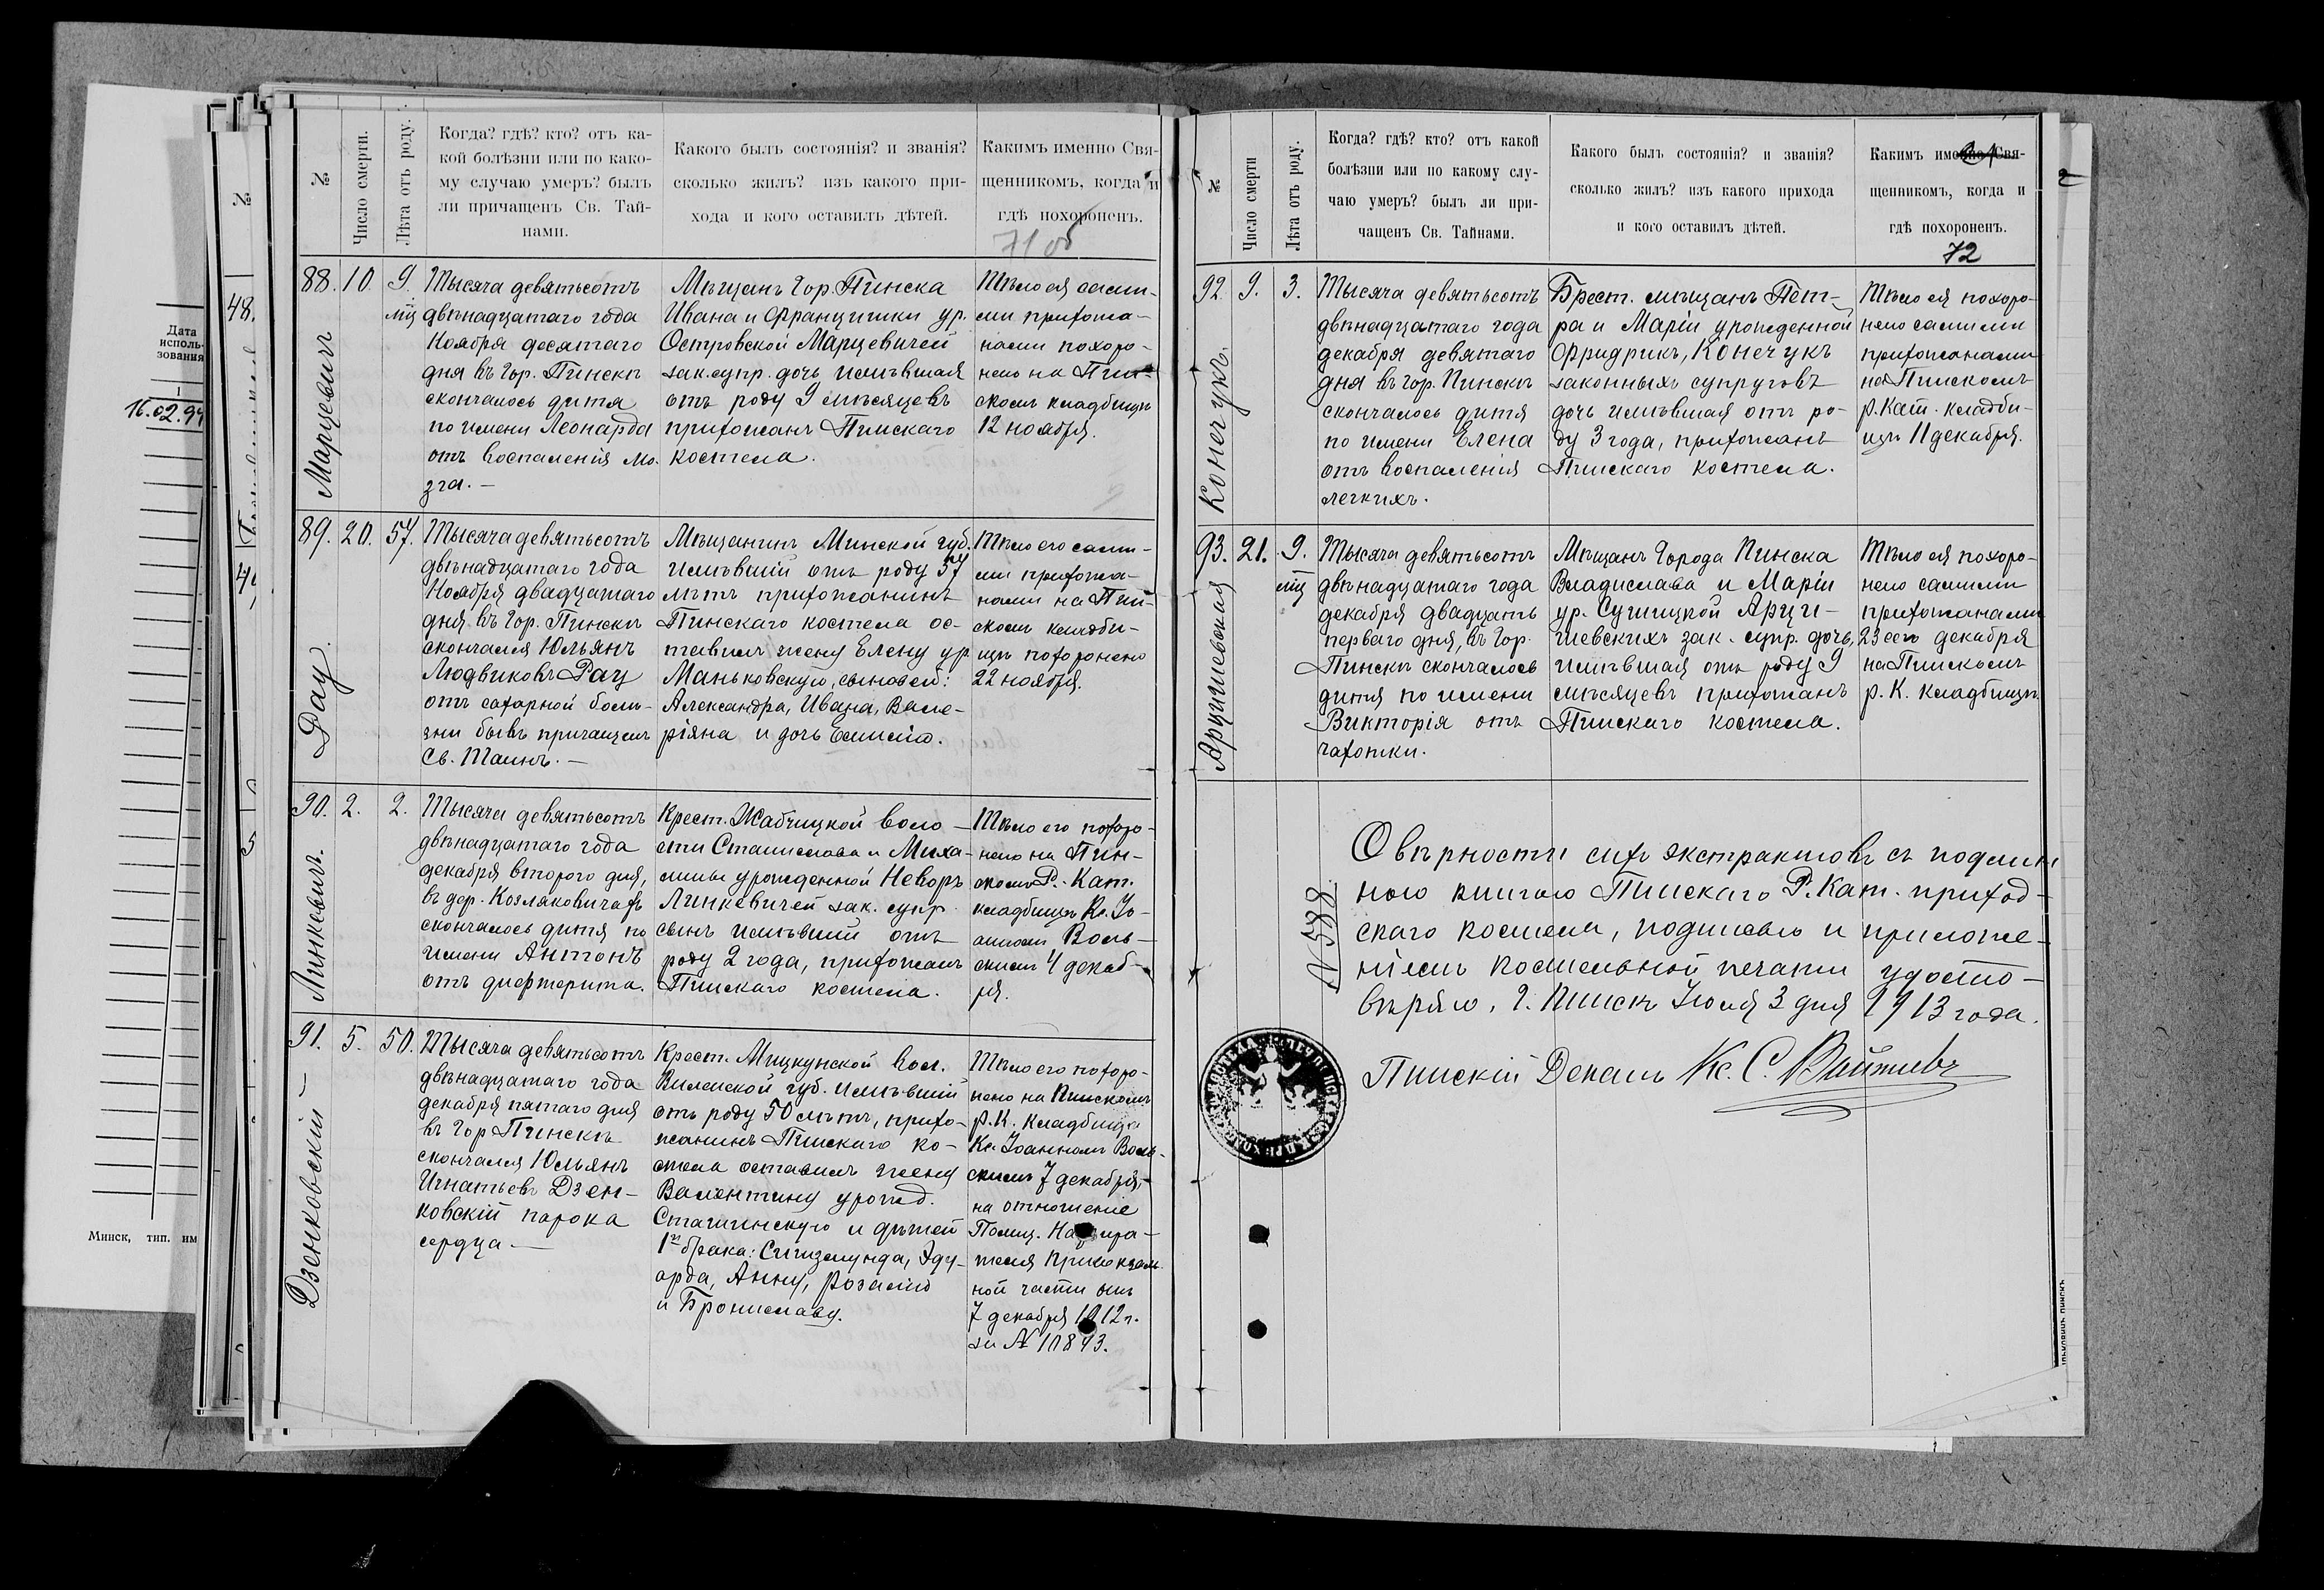 №
48.
5
Дата
исполь-
зования
1
16.02.94
Минск, тип. им
№
Число смерти.
Лѣта отъ роду.
Когда? гдѣ? кто? отъ ка-
кой болѣзни или по како-
му случаю умеръ? былъ
ли причащенъ Св. Тай-
нами.
Какого былъ состоянія? и званія?
сколько жилъ? изъ какого при-
хода и кого оставилъ дѣтей.
Какимъ именно Свя-
щенникомъ, когда и
гдѣ похороненъ.
71 об
88. 10 9. мц
Марцевичъ
Тысяча девятьсотъ
двѣнадцатаго года
Ноября десятаго
дня въ Гор. Пинскѣ
скончалось дитя
по имени Леонарда
отъ воспаленія мо-
зга. —
Мѣщанъ Гор. Пинска
Ивана и Францишки ур.
Островской Марцевичей
зак. супр. дочь имѣвшая
отъ роду 9 мѣсяцевъ
прихожанъ Пинскаго
костела.
Тѣло ея сами-
ми прихожа-
нами похоро-
нено на Пин-
скомъ кладбищѣ
12 ноября.
89. 20. 57.
Рау.
Тысяча девятьсотъ
двѣнадцатаго года
Ноября двадцатаго
дня въ Гор. Пинскѣ
скончался Юльянъ
Людвиковъ Рау
отъ сахарной болѣ-
зни бывъ причащенъ
Св. Таинъ. —
Мѣщанинъ Минской губ.
имѣвшій отъ роду 57
лѣтъ прихожанинъ
Пинскаго костела ос-
тавилъ жену Елену ур.
Маньковскую, сыновей:
Александра, Ивана, Вале-
ріяна и дочь Емилію.
Тѣло его сами-
ми прихожа-
нами на Пин-
скомъ кладби-
щѣ похоронено
22 ноября.
90. 2. 2.
Линкевичъ.
Тысяча девятьсотъ
двѣнадцатаго года
декабря второго дня,
въ дер. Козляковичахъ
скончалось дитя по
имени Антонъ
отъ дифтерита.
Крест. Жабчицкой воло-
сти Станислава и Миха-
лины урожденной Неворъ
Линкевичей зак. супр.
сынъ имѣвшій отъ
роду 2 года, прихожанъ
Пинскаго костела.
Тѣло его похоро-
нено на Пин-
скомъ Р. Кат.
кладбищѣ Кс. Іо-
анномъ Воль-
скимъ 4 декаб-
ря.
91. 5. 50.
Дзенковскій —
Тысяча девятьсотъ
двѣнадцатаго года
декабря пятаго дня
въ Гор Пинскѣ
скончался Юльянъ
Игнатьевъ Дзен-
ковскій парока
сердца —
Крест. Мицкунской вол.
Виленской губ. имѣвшій
отъ роду 50 лѣтъ, прихо-
жанинъ Пинскаго ко-
стела оставилъ жену
Валентину урожд.
Сташинскую и дѣтей
1го брака: Сигизмунда, Эду-
арда, Анну, Розалію
и Брониславу.
Тѣло его похоро-
нено на Пинскомъ
Р. К. кладбищѣ
Кс. Іоанномъ Воль-
скимъ 7 декабря,
на отношеніе
Полиц. Надзира-
теля Привокзаль-
ной части отъ
7 декабря 1912 г.
за № 10843.
№
Число смерти
Лѣта отъ роду.
Когда? гдѣ? кто? отъ какой
болѣзни или по какому слу-
чаю умеръ? былъ ли при-
чащенъ Св. Тайнами.
Какого былъ состоянія? и званія?
сколько жилъ? изъ какого прихода
и кого оставилъ дѣтей.
Какимъ именно Свя-
щенникомъ, когда и
гдѣ похороненъ.
72
92. 9. 3.
Конечукъ.
Тысяча девятьсотъ
двѣнадцатаго года
декабря девятаго
дня въ гор. Пинскѣ
скончалось дитя
по имени Елена
отъ воспаленія
легкихъ.
Брест. мѣщанъ Пет-
ра и Маріи урожденной
Фридрикъ, Конечукъ
законныхъ супруговъ
дочь имѣвшая отъ ро-
ду 3 года, прихожанъ
Пинскаго костела.
Тѣло ея похоро-
нено самими
прихожанами
на Пинскомъ
р. Кат. кладби-
щѣ 11 декабря.
93. 21. 9. мц
Арцишевская
Тысяча девятьсотъ
двѣнадцатаго года
декабря двадцать
перваго дня, въ Гор.
Пинскѣ скончалось
дитя по имени
Викторія отъ
чахотки.
Мѣщанъ Города Пинска
Владислава и Маріи
ур. Сушицкой Арци-
шевскихъ зак. супр. дочь,
имѣвшая отъ роду 9
мѣсяцевъ прихожанъ
Пинскаго костела.
Тѣло ея похоро-
нено самими
прихожанами
23 сего декабря
на Пинскомъ
р. К. кладбищѣ.
№ 588
О вѣрности сихъ экстрактовъ съ подлин
ною книгою Пинскаго Р. Кат. приход-
скаго костела, подписью и приложе-
ніемъ костельной печати удосто-
вѣряю, г. Пинскъ Іюля 3 дня 1913 года.
Пинскій Деканъ Кс. С. Войтев